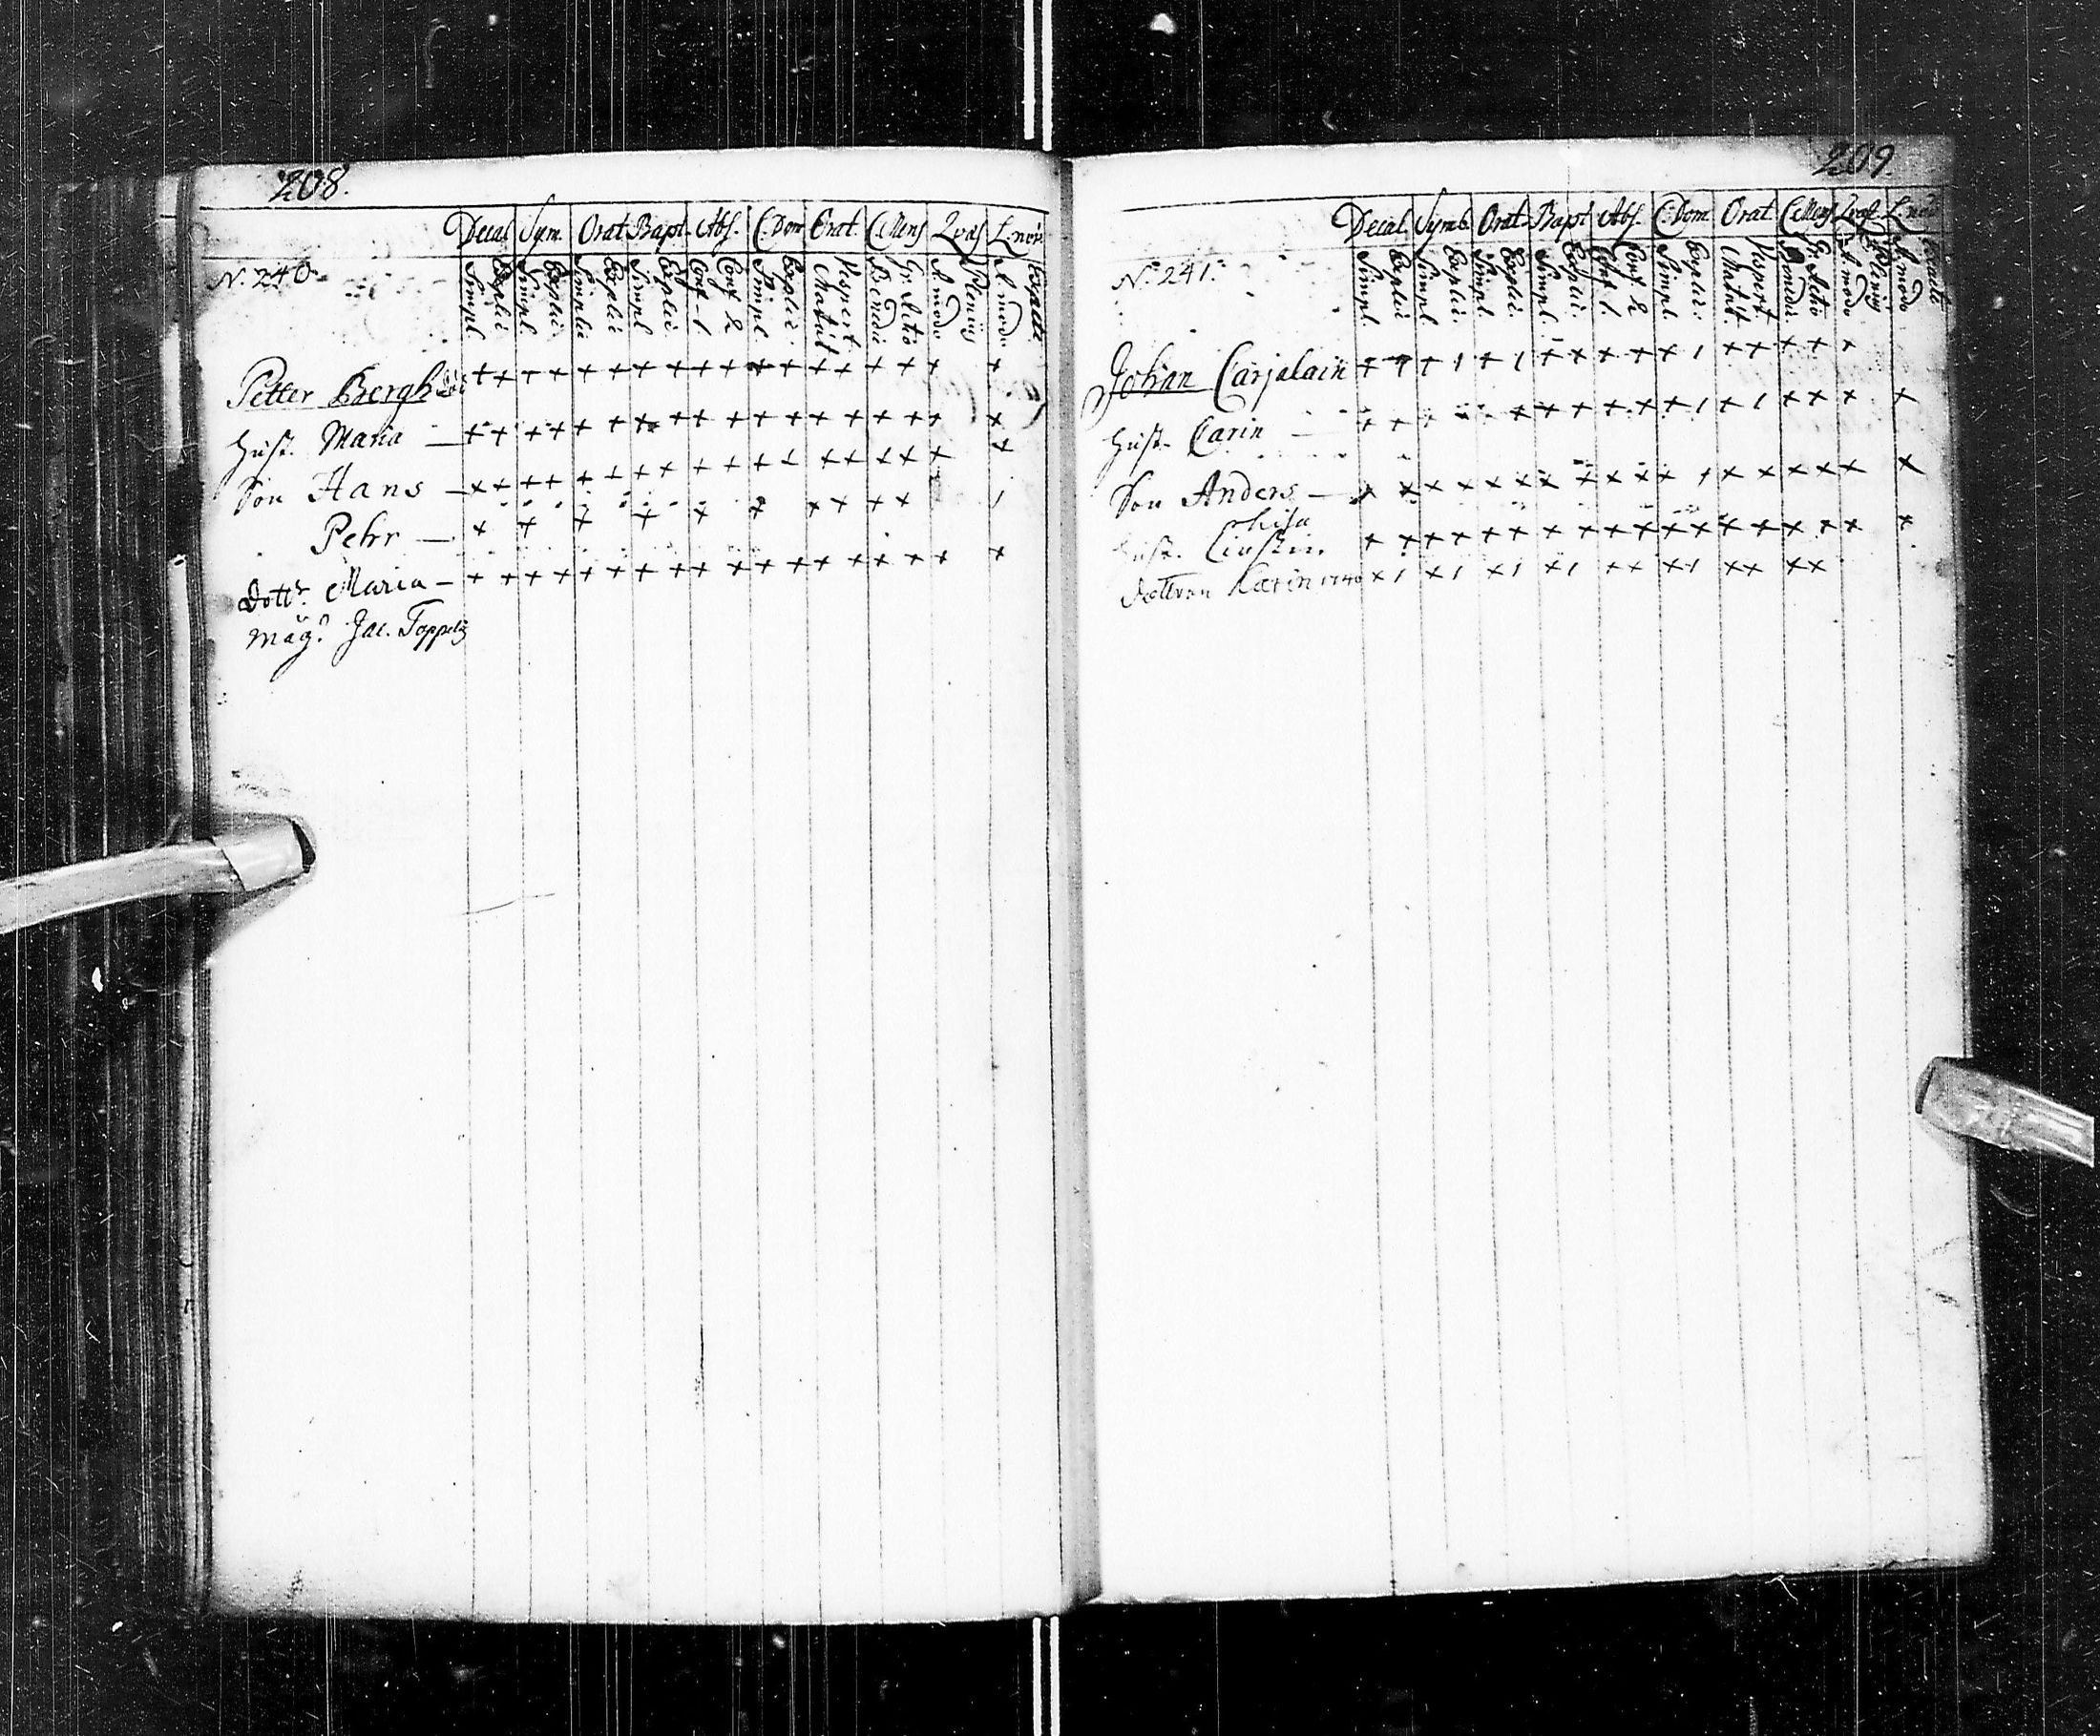 208.
Decal Sym. Orat Bapt. Abs. C. Dom Orat. C Mens Qvæs L. nov.
N. 240.
Simpl. Explic Simpl. Explic Simplic Explic Simpl Explic Conf 1 Conf 2 Simpl. Explic. Matut Vespert Benedic Gr. Actio A modo Pleniūs A modo Expedite
Petter Bergh död + + + + + + + + + + + + + + + + + +
hust. Maria — + + + + + + + + + + + + + + + + + +
Son Hans — + + + + + + + + + + + + + + + + + +
Pehr — + + + + + + + + + + 1
dottr. Maria — + + + + + + + + + + + + + + + + + +
måg. Jac. Toppelig
209.
Decal Symb. Orat. Bapt Abs. C. Dom Orat. C Mens Qvæst. L. nov
N. 241.
Simpl. Explic Simpl. Explic. Simpl. Explic. Simpl. Explic. Conf 1. Conf 2 Simpl. Explic. Matut. Vespert Benedic. Gr. Actio A modo Pleniūs A modo
Johan Carjalain + + + 1 + 1 + + + + + 1 + + + + +
hust. Carin — + + + + + + + + + 1 + 1 + + + +
Son Anders — + + + + + + + + + + + 1 + + + + + +
Lisa
hust. + + + + + + + + + + + + + + + + + +
dottren Karin 1740 + 1 + 1 + 1 + 1 + + + 1 + + + +